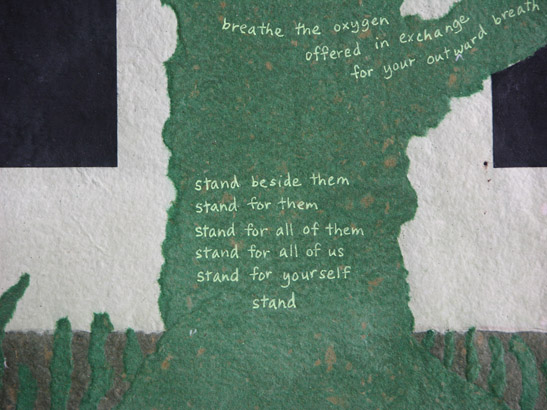 breathe the oxygen
offered in exchange
for your outward breath
stand beside them
stand for them
stand for all of them
stand for all of us
stand for yourself
stand